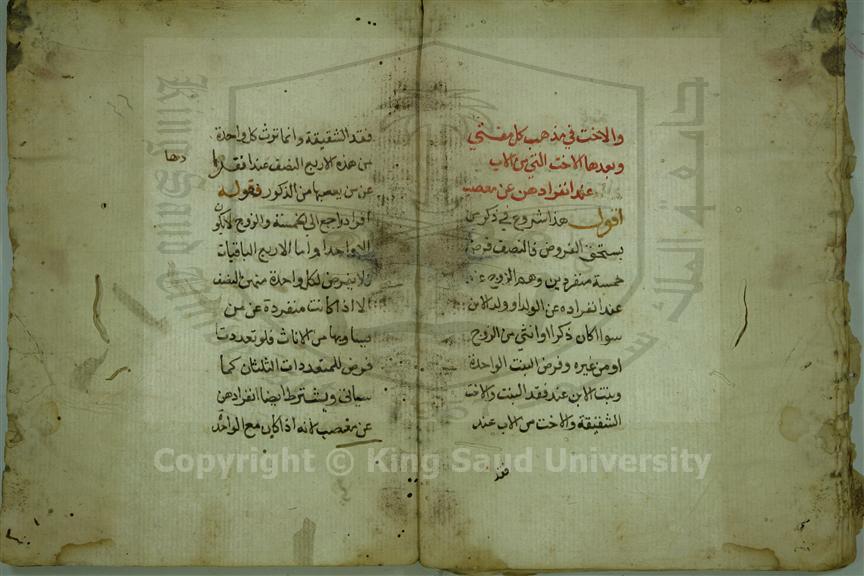 والاخت في مذهب كل مفتي
وبعدها الاخت التي من الاب
عند انفرادهن عن معصب
اقول هذا شروع في ذكر من
يستحق الفروض فالنصف فرض
خمسة منفردين وهم الزوج
عند انفراده عن الولد او ولد الابن
سوا اكان ذكرا او انثي من الزوج
او من غيره وفرض البنت الواحدة
وبنت الابن عند فقد البنت والاخت
الشقيقة والاخت من الاب عند
فقد
فقد الشقيقة وانما ترث كل واحدة
من هذه الاربع النصف عند انفرا
دها
عن من يعصبها من الذكور فقوله
افراد راجع الى الخمسة والزوج لايكون
الا واحدا واما الاربع الباقيات
فلا يفرض لكل واحدة منهن النصف
الا اذا كانت منفردة عن من
يساويها من الاناث فلو تعددت
فرض للمتعددات الثلثان كما
سياتي ويشترط ايضا انفرادهن
عن معصب لانه اذا كان مع الواحدة
Copyright © King Saud University
جامعة الملك سعود
King Saud University